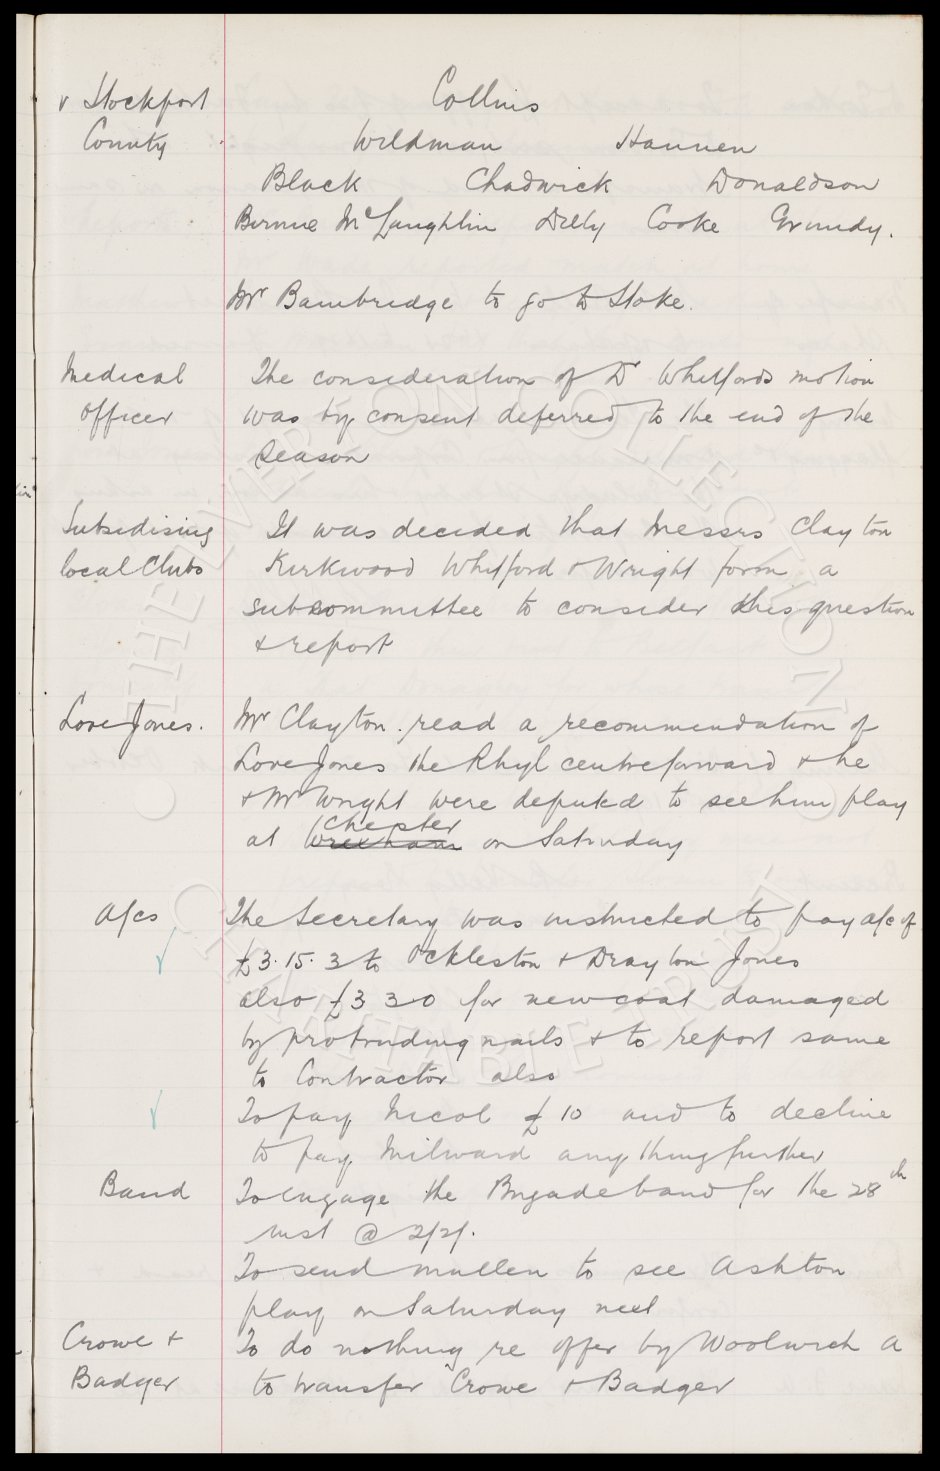 v Stockport County
Collins
Wildman Hannen
Black Chadwick Donaldson
Birnie McLaughlin Dilly Cooke Grundy.
Mr Bambridge to go to Stoke.
Medical Officer
The consideration of Dr Whitfords motion
was by consent deferred to the end of the
Season
Subsidising local Clubs
It was decided that Messrs Clayton
Kirkwood Whitford & Wright form a
subcommittee to consider this question
& report
Love Jones.
Mr Clayton read a recommendation of
Love Jones the Rhyl centreforward & he
& Mr Wright were deputed to see him play
at Wrexham Chester on Saturday
A/cs
The Secretary was instructed to pay a/c of
£3.15.3 to Ockleston & Drayton Jones
also £3 3 0 for new coat damaged
by protruding nails & to report same
to Contractor also
To pay Nicol £10 and to decline
to pay Milward anything further
Band
To engage the Brigade band for the 28th
inst @ 2/2/.
To send Mullen to see Ashton
play on Saturday next
Crowe & Badger
To do nothing re offer by Woolwich A
to transfer Crowe & Badger
THE EVERTON COLLECTION
CHARITABLE TRUST